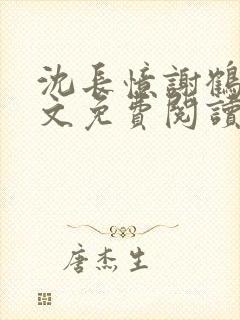 沈長憶謝鶴
文免費閱讀
唐杰生